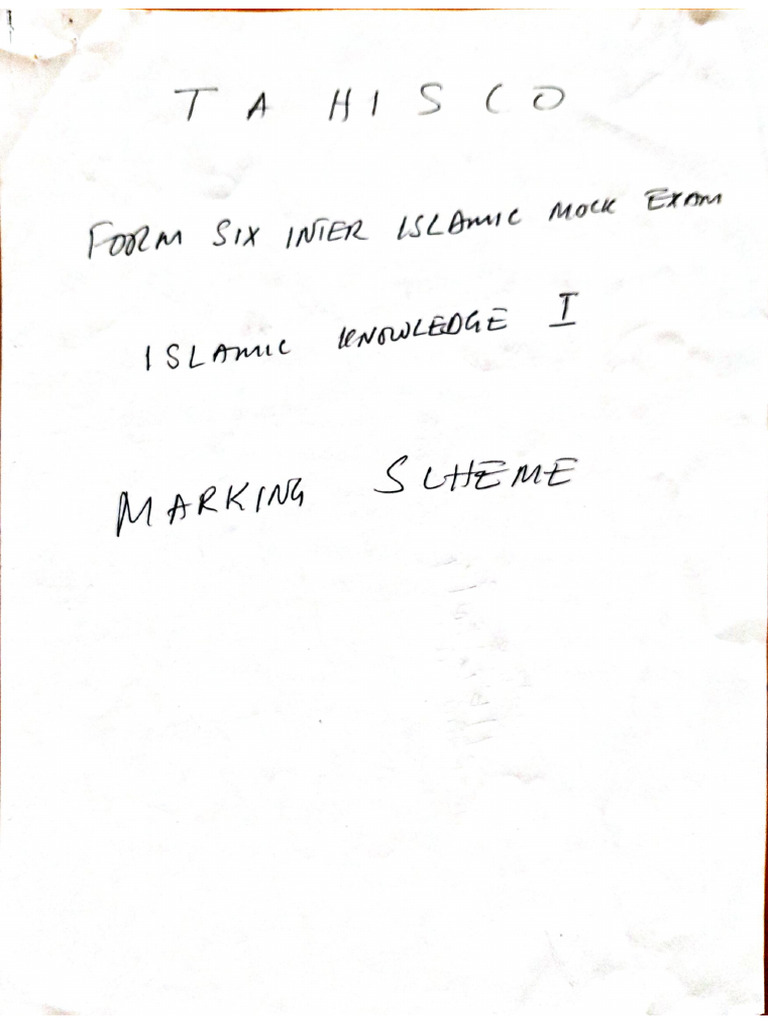 TAHISCO
FORM SIX INTER ISLAMIC MOCK EXAM
ISLAMIC KNOWLEDGE I
MARKING SCHEME